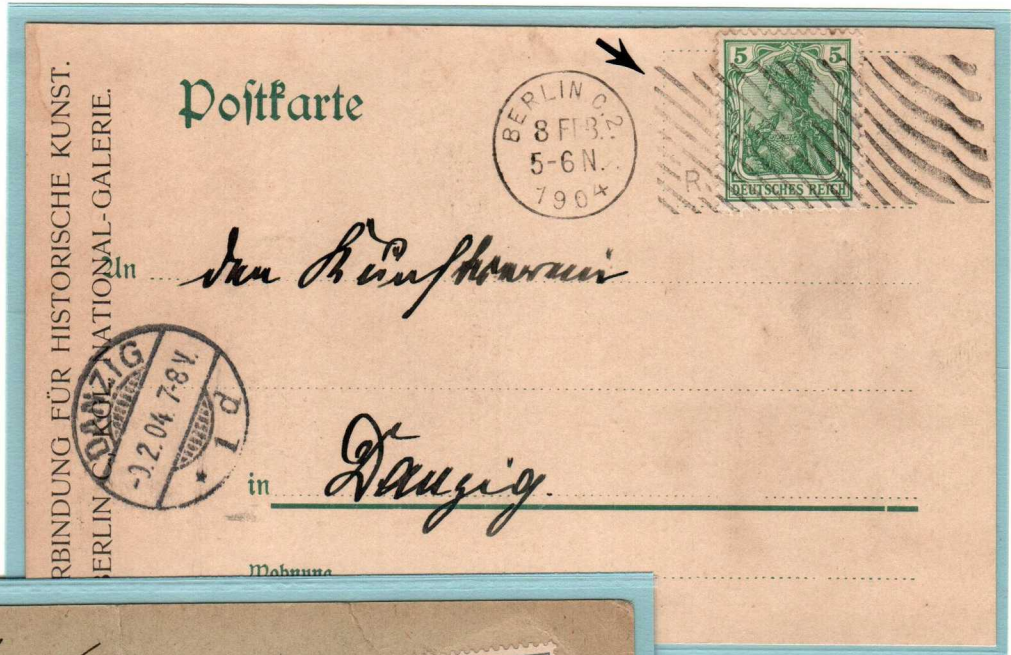 RBINDUNG FÜR HISTORISCHE KUNST.
BERLIN C. KGL. NATIONAL-GALERIE.
Poſtkarte
BERLIN C.2.
8 FEB.
5-6 N.
1904
R.
5 5
DEUTSCHES REICH
An den Kunstverein
DANZIG
-9.2.04. 7-8 V.
* 1 d
in Danzig.
Wohnung